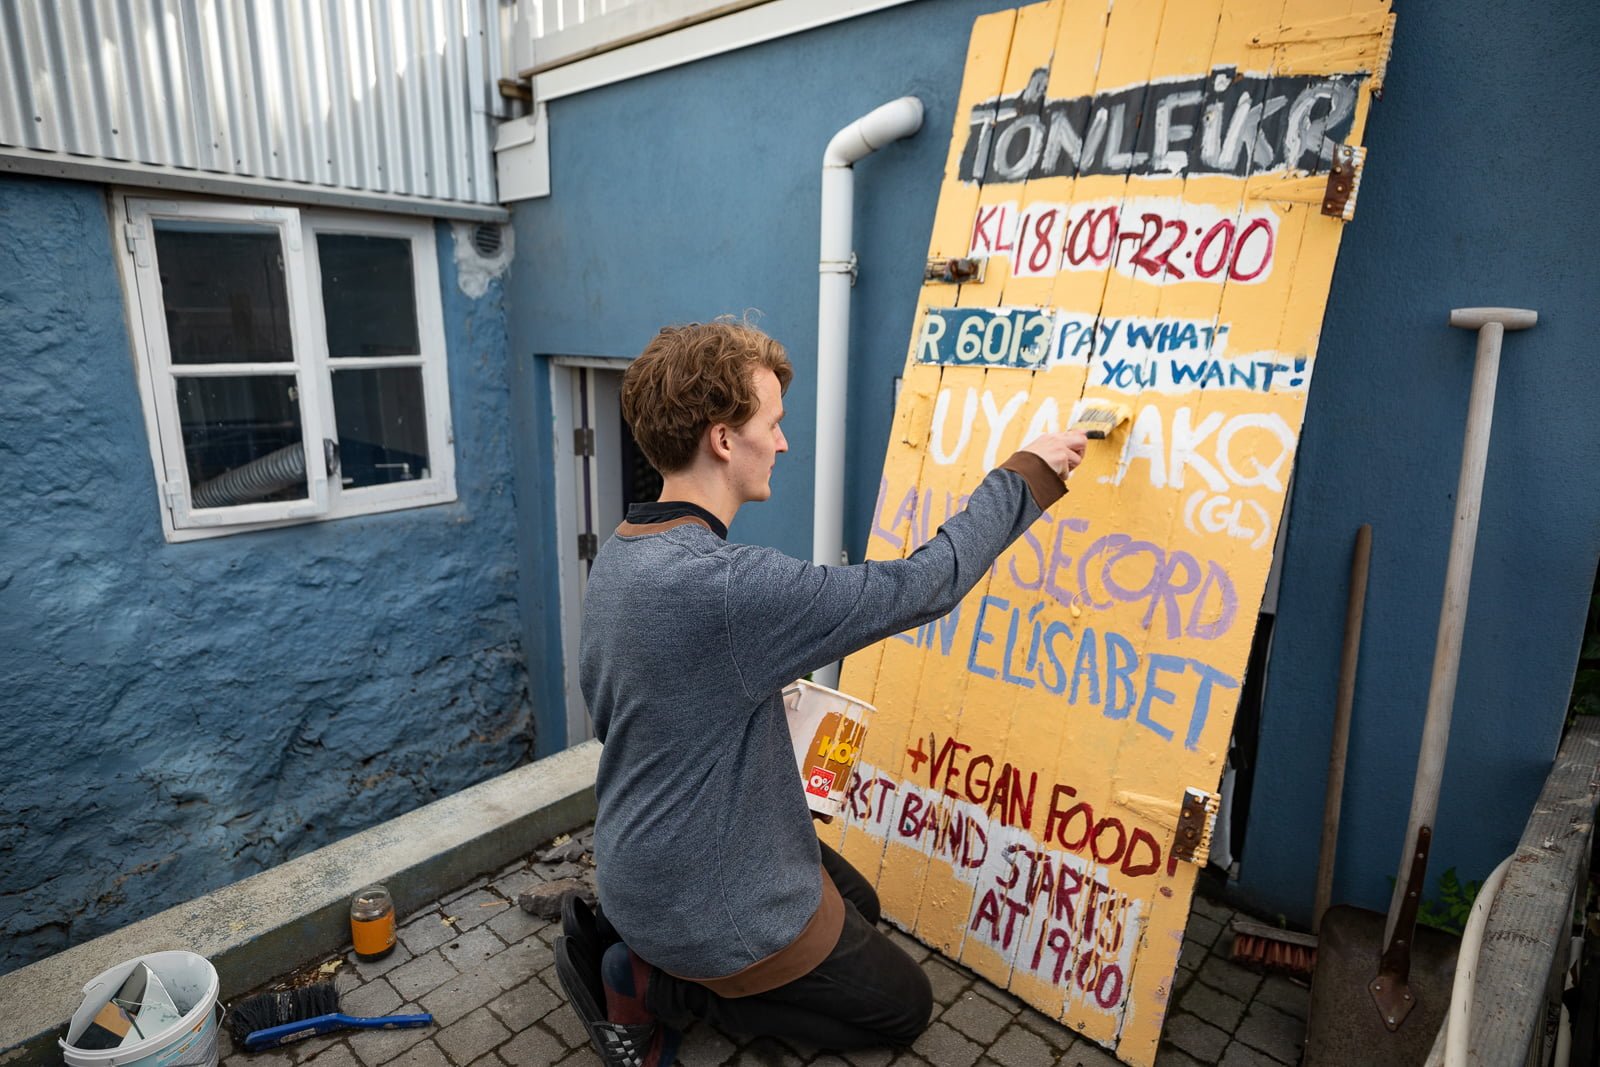 TÓNLEIKR
KL 18:00-22:00
R 6013 PAY WHAT
YOU WANT!
(GL)
SECORD
ELÍSABET
+VEGAN FOOD!
BAND STARTS
AT 19:00
0%